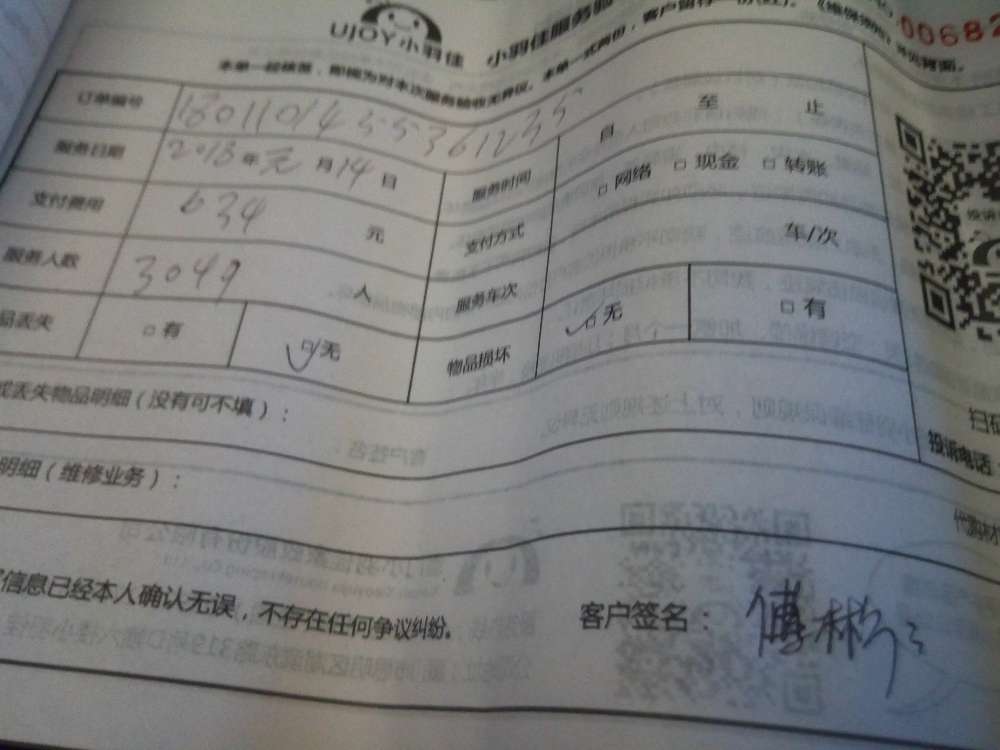 UJOY小羽佳 小羽佳服务验
00682
本单一经核签，即视为对本次服务验收无异议。本单一式两份，客户留存一份(红)。《维保须知》详见背面。
订单编号 18011014553612355
服务日期 2018年元月14日 服务时间 自 至 止
支付费用 634 元 支付方式 □网络 □现金 □转账
服务人数 3049 人 服务车次 车/次
品丢失 □有 □无 物品损坏 □无 □有
或丢失物品明细（没有可不填）：
扫码
投诉电话：
明细（维修业务）：
信息已经本人确认无误，不存在任何争议纠纷。 客户签名：傅彬